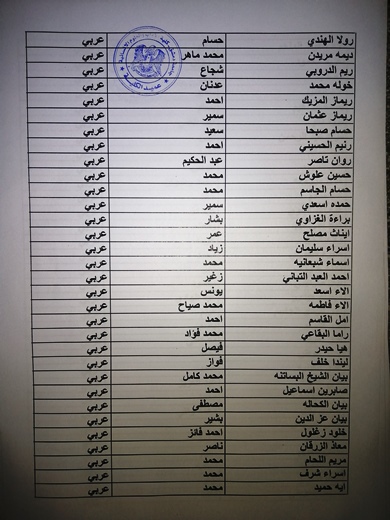 رولا الهندي حسام عربي
ديمه مريدن محمد ماهر عربي
ريم الدروبي شجاع عربي
خوله محمد عدنان عربي
ريماز المزيك احمد عربي
ريماز عثمان سمير عربي
حسام صبحا سعيد عربي
رنيم الحسيني احمد عربي
روان ناصر عبد الحكيم عربي
حسين علوش محمد عربي
حسام الجاسم محمد عربي
حمده اسعدي سمير عربي
براءة الغزاوي بشار عربي
ايناث مصلح عمر عربي
اسراء سليمان زياد عربي
اسماء شبعانيه محمد عربي
احمد العبد التباني زغير عربي
الاء اسعد يونس عربي
الاء فاطمه محمد صياح عربي
امل القاسم احمد عربي
راما البقاعي محمد فؤاد عربي
هيا حيدر فيصل عربي
ليندا خلف فواز عربي
بيان الشيخ البساتنه محمد كامل عربي
صابرين اسماعيل احمد عربي
بيان الكحاله مصطفى عربي
بيان عز الدين بشير عربي
خلود زغلول احمد فائز عربي
معاذ الزرقان ناصر عربي
مريم اللحام محمد عربي
اسراء شرف محمد عربي
ايه حميد محمد عربي